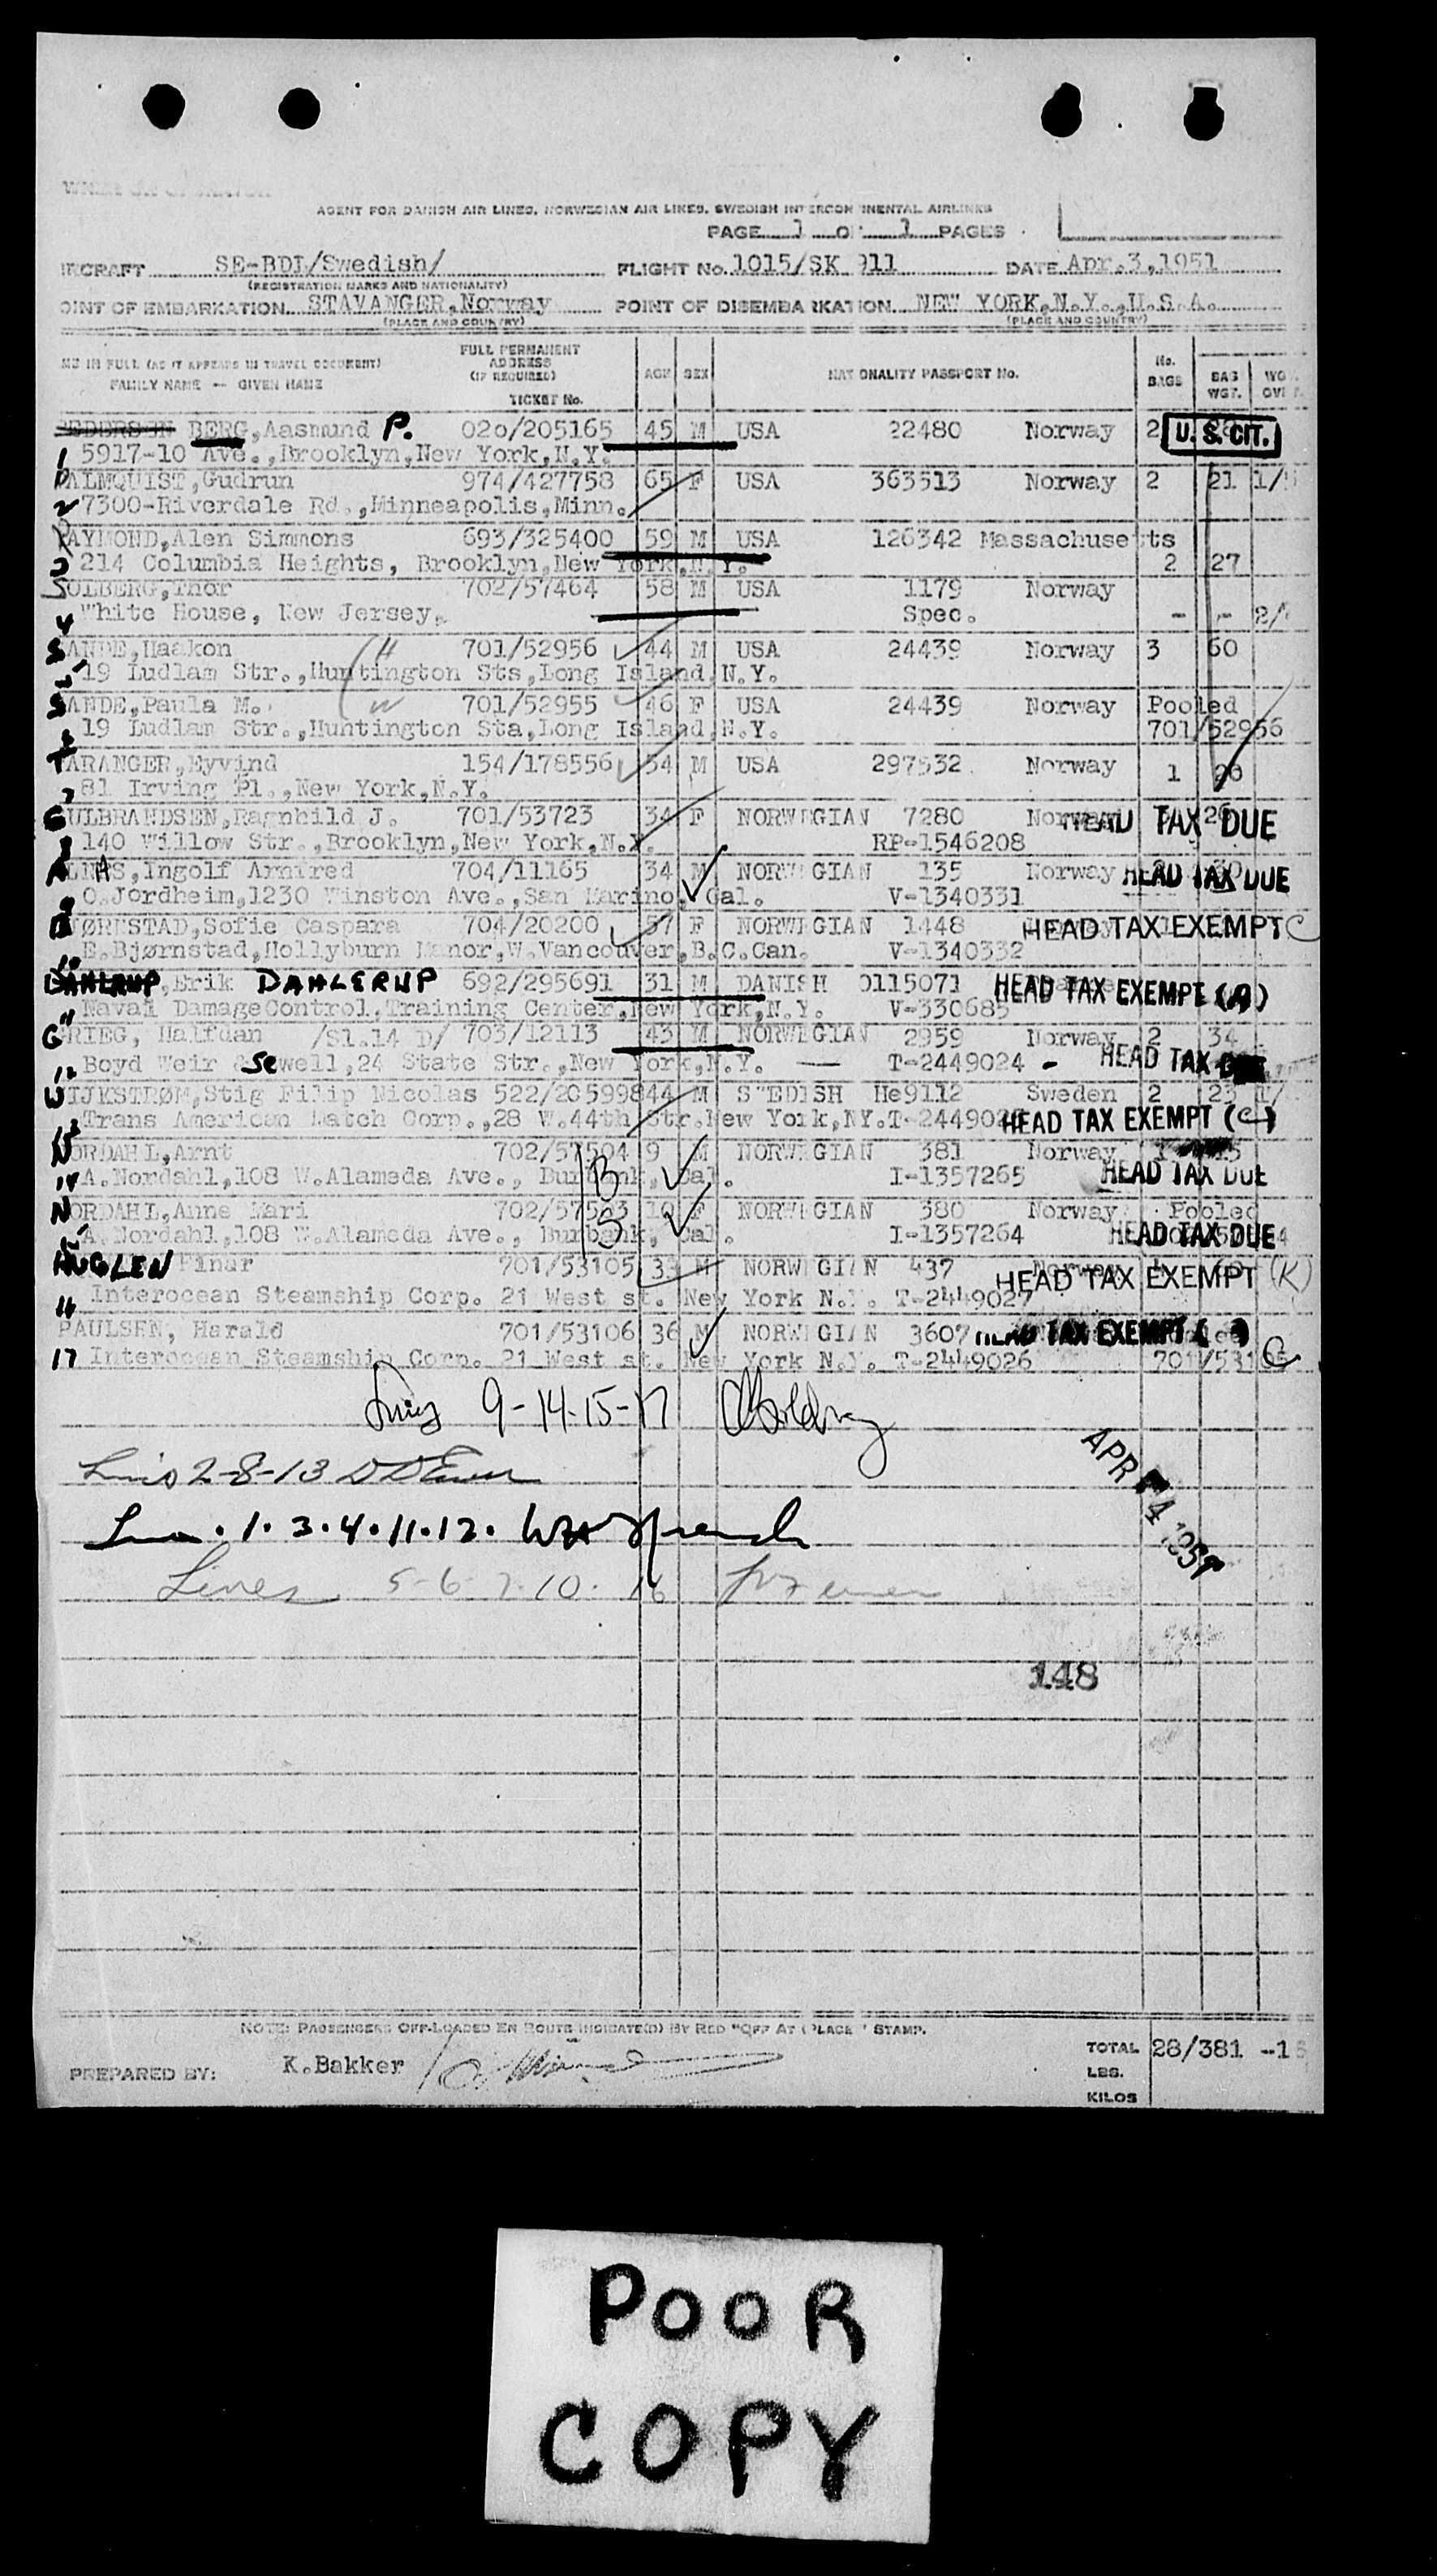 AGENT FOR DANISH AIR LINES, NORWEGIAN AIR LINES, SWEDISH INTERCONTINENTAL AIRLINES
PAGE 1 OF 1 PAGES
IRCRAFT SE-BDI/Swedish/ FLIGHT No. 1015/SK 911 DATE Apr.3,1951
(REGISTRATION MARKS AND NATIONALITY)
OINT OF EMBARKATION STAVANGER,Norway POINT OF DISEMBARKATION NEW YORK,N.Y.,U.S.A.
(PLACE AND COUNTRY) (PLACE AND COUNTRY)
ME IN FULL (AS IT APPEARS IN TRAVEL DOCUMENT) FULL PERMANENT ADDRESS (IF REQUIRED) AGE SEX NATIONALITY PASSPORT No. No. BAGS BAG WGT.
FAMILY NAME -- GIVEN NAME TICKET No.
PEDERSEN BERG,Aasmund P. 020/205165 45 M USA 22480 Norway 2 U. S. CIT.
1 5917-10 Ave.,Brooklyn,New York,N.Y.
PALMQUIST,Gudrun 974/427758 65 F USA 363513 Norway 2 21
2 7300-Riverdale Rd.,Minneapolis,Minn.
RAYMOND,Alen Simmons 693/325400 59 M USA 126342 Massachusetts
3 214 Columbia Heights, Brooklyn,New York,N.Y. 2 27
SOLBERG,Thor 702/57464 58 M USA 1179 Norway
4 White House, New Jersey. Spec. - -
SANDE,Haakon H 701/52956 44 M USA 24439 Norway 3 60
5 19 Ludlam Str.,Huntington Sts,Long Island,N.Y.
SANDE,Paula M. W 701/52955 46 F USA 24439 Norway Pooled
6 19 Ludlam Str.,Huntington Sta,Long Island,N.Y. 701/52956
TARANGER,Eyvind 154/178556 54 M USA 297532 Norway 1 20
7 81 Irving Pl.,New York,N.Y.
GULBRANDSEN,Ragnhild J. 701/53723 34 F NORWEGIAN 7280 Norway HEAD TAX DUE
8 140 Willow Str.,Brooklyn,New York,N.Y. RP-1546208
ALNES,Ingolf Arnfred 704/11165 34 M NORWEGIAN 135 Norway HEAD TAX DUE
9 O.Jordheim,1230 Winston Ave.,San Marino,Cal. V-1340331
BJØRNSTAD,Sofie Caspara 704/20200 57 F NORWEGIAN 1448 HEAD TAX EXEMPT C
10 E.Bjørnstad,Hollyburn Manor,W.Vancouver,B.C.Can. V-1340332
DAHLRUP,Erik DAHLERUP 692/295691 31 M DANISH 0115071 HEAD TAX EXEMPT (A)
11 Naval DamageControl,Training Center,New York,N.Y. V-330685
GRIEG, Halfdan /Sl.14 D/ 703/12113 43 M NORWEGIAN 2959 Norway 2 34
12 Boyd Weir & Sewell,24 State Str.,New York,N.Y. — T-2449024 - HEAD TAX DUE
WIJKSTRØM,Stig Filip Nicolas 522/20599844 M SWEDISH He9112 Sweden 2 23
13 Trans American Match Corp.,28 W.44th Str.New York,NY. HEAD TAX EXEMPT (C)
NORDAHL,Arnt 702/57504 9 M NORWEGIAN 381 Norway
14 A.Nordahl,108 W.Alameda Ave., Burbank, Cal. B I-1357265 HEAD TAX DUE
NORDAHL,Anne Mari 702/57503 10 F NORWEGIAN 380 Norway Pooled
15 A.Nordahl,108 W.Alameda Ave., Burbank, Cal. S I-1357264 HEAD TAX DUE
HUGLEN Einar 701/53105 33 M NORWEGIAN 437 HEAD TAX EXEMPT (K)
16 Interocean Steamship Corp. 21 West st. New York N.Y. T-2449027
PAULSEN, Harald 701/53106 36 M NORWEGIAN 3607 HEAD TAX EXEMPT
17 Interocean Steamship Corp. 21 West st. New York N.Y. T-2449026 701/53105 C
9-14-15-17
2-8-13
1.3.4.11.12.
APR 4 1951
Lines 5-6-7-10-16
148
NOTE: PASSENGERS OFF-LOADED EN ROUTE INDICATE(D) BY RED "OFF AT (PLACE)" STAMP.
PREPARED BY: K.Bakker TOTAL 28/381
LBS.
KILOS
POOR
COPY